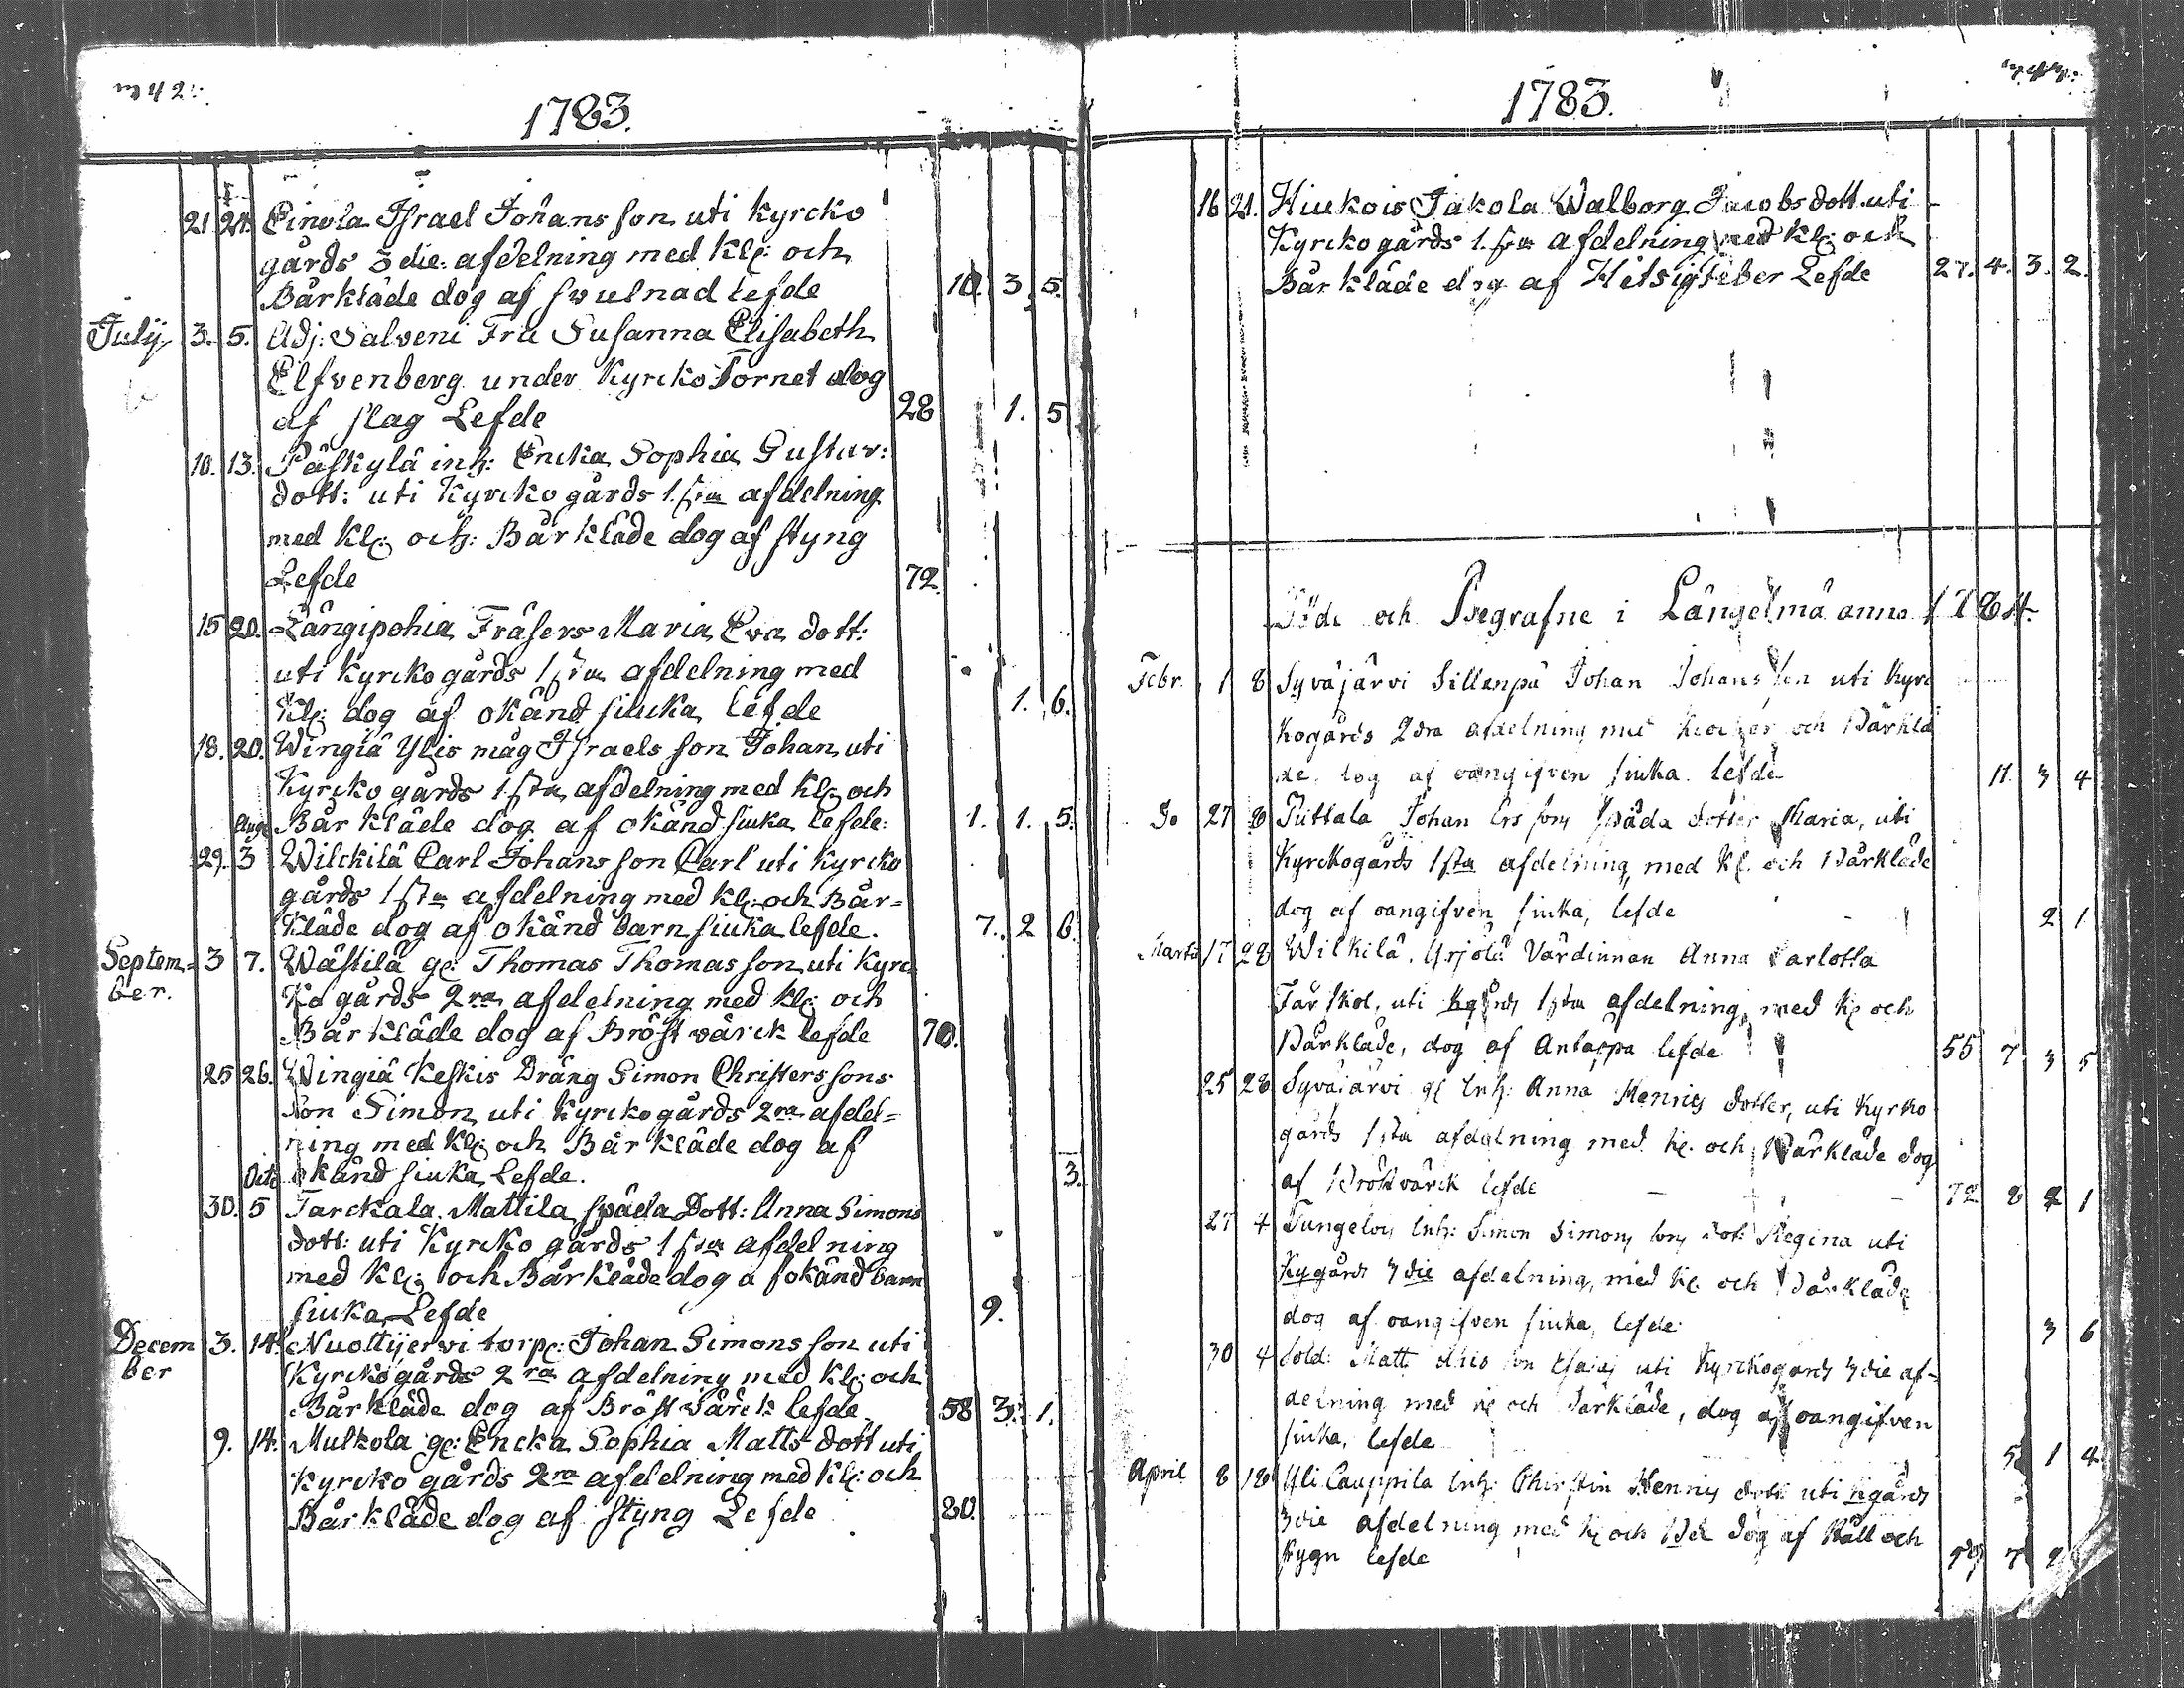 1783.
21. 24. Einola Israel Johans son uti Kyrcko
gårds 3 die: afdelning med Kl: och
Bårkläde dog af swulnad lefde 10. 3 5.
Julij 3. 5. Adj: Salveni Fru Susanna Elisabeth
Elfvenberg under Kyrcko Tornet dog
af slag Lefde 28 1. 5
10. 13. Påskylä inh: Ericka Sophia Gustav:
dott: uti Kyrcko gårds 1. sta afdelning
med Kl: och: Bårkläde dog af styng
Lefde 72
15 20. Längipohia Fräsers Maria Eva dott:
uti Kyrcko gårds 1 sta afdelning med
Kl: dog af okänd siuka lefde 1. 6.
18. 20. Wingiä Ylis måg Israels son Johan uti
Kyrcko gårds 1. sta afdelning med Kl: och
Aug: Bår kläde dog af okänd siuka lefde: 1. 1. 5.
29. 3 Wilckilä Carl Johans son Carl uti Kyrcko
gårds 1 sta afdelning med Kl: och Bår=
kläde dog af okänd barn siuka lefde. 7. 2 6.
Septem= 3 7. Wästilä gl: Thomas Thomas son uti Kyrc
ber. ko gårds 2ra afdelning med Kl: och
Bår kläde dog af Bröst wärck lefde 70.
25 26. Wingiä Keskis Dräng Simon Christers sons
son Simon uti Kyrcko gårds 2ra afdel=
ning med Kl: och Bår kläde dog af
Octo okänd siuka Lefde. 3.
30. 5 Tarckala Mattila späda Dott: Anna Simons
dott: uti Kyrcko gårds 1 sta afdelning
med Kl: och Bårkläde dog af okänd barn
siuka Lefde 9.
Decem 3. 14. Nuottijervi torp: Johan Simons son uti
ber Kyrcko gårds 2ra afdelning med Kl: och
Bårkläde dog af Bröst wärck lefde 58 3. 1.
9. 14. Mulkola gl: Encka Sophia Matts dott uti
Kyrcko gårds 2ra afdelning med Kl: och
Bårkläde dog af styng Lefde 80.
1783.
16 21. Hiukois Jakola Walborg Jacobs dott. uti
Kyrcko gårds 1. sta afdelning med Kl: och
Bår kläde dog af Hetsigfeber Lefde 27. 4. 3. 2.
Döde och Begrafne i Längelmä anno 1784.
Febr. 1 8 Syväjärvi Sillanpä Johan Johans son uti Kyrc
kogårds 2dra afdelning med klockor och Bårklä
de dog af oangifven siuka lefde 11. 3 4
Do 27 8 Puttala Johan Ers sons späda dotter Maria, uti
Kyrckogårds 1sta afdelning, med Kl. och Bårkläde
dog af oangifven siuka, lefde 2 1
Martii 17 28 Wilkilä, Yrjölä Värdinnan Anna Carlotta
uti Kgårds 1sta afdelning, med Kl och
Bårkläde, dog af lefde 55 7 3 5
25 28 Syväjärvi gl Inh: Anna Henrics dotter, uti Kyrko
gårds 1sta afdelning med kl. och Bårkläde dog
af Bröstvärck lefde 72 8 2 1
27 4 Inh: Simon Simons sons dot: Regina uti
Kygårds 3die afdelning, med Kl. och Bårkläde
dog af oangifven siuka, lefde 3 6
30 4 Sold: Matts son Esaias uti Kyrckogårds 3die af-
delning med kl och Bårkläde, dog af oangifven
siuka, lefde 5 1 4
April 8 18 Yli Cauppila Inh: Christin Henrics dott uti Kgårds
3die afdelning med Kl och Bkl dog af Håll och
stygn lefde 79 7 2